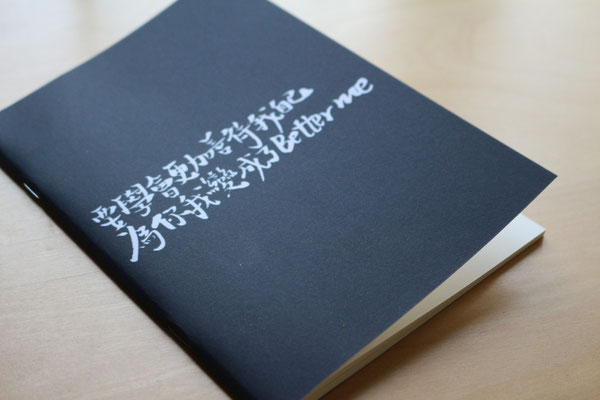 要學會更加善待我自己
為你我變成了Better me